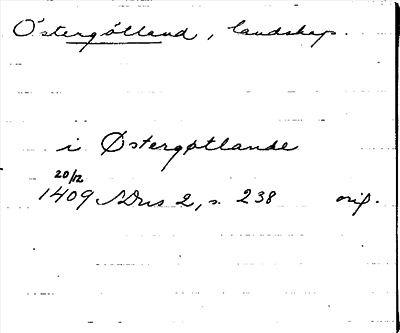 Östergötland, landskap.
i Østergøtlande
20/12
1409 SDns 2, s. 238 orig.